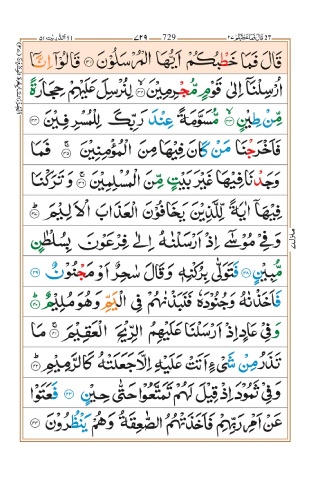 729
قَالَ فَمَا خَطْبُكُمْ اَيُّهَا الْمُرْسَلُوْنَ ۳۱ قَالُوْۤا اِنَّاۤ
اُرْسِلْنَاۤ اِلٰى قَوْمٍ مُّجْرِمِيْنَ ۳۲ لِنُرْسِلَ عَلَيْهِمْ حِجَارَةً
مِّنْ طِيْنٍ ۳۳ مُّسَوَّمَةً عِنْدَ رَبِّكَ لِلْمُسْرِفِيْنَ ۳۴
فَاَخْرَجْنَا مَنْ كَانَ فِيْهَا مِنَ الْمُؤْمِنِيْنَ ۳۵ فَمَا
وَجَدْنَا فِيْهَا غَيْرَ بَيْتٍ مِّنَ الْمُسْلِمِيْنَ ۳۶ وَتَرَكْنَا
فِيْهَاۤ اٰيَةً لِّلَّذِيْنَ يَخَافُوْنَ الْعَذَابَ الْاَلِيْمَ ۳۷
وَفِيْ مُوْسٰۤى اِذْ اَرْسَلْنٰهُ اِلٰى فِرْعَوْنَ بِسُلْطٰنٍ
مُّبِيْنٍ ۳۸ فَتَوَلّٰى بِرُكْنِهٖ وَقَالَ سٰحِرٌ اَوْ مَجْنُوْنٌ ۳۹
فَاَخَذْنٰهُ وَجُنُوْدَهٗ فَنَبَذْنٰهُمْ فِي الْيَمِّ وَهُوَ مُلِيْمٌ ۴۰
وَفِيْ عَادٍ اِذْ اَرْسَلْنَا عَلَيْهِمُ الرِّيْحَ الْعَقِيْمَ ۴۱ مَا
تَذَرُ مِنْ شَيْءٍ اَتَتْ عَلَيْهِ اِلَّا جَعَلَتْهُ كَالرَّمِيْمِ ۴۲
وَفِيْ ثَمُوْدَ اِذْ قِيْلَ لَهُمْ تَمَتَّعُوْا حَتّٰى حِيْنٍ ۴۳ فَعَتَوْا
عَنْ اَمْرِ رَبِّهِمْ فَاَخَذَتْهُمُ الصّٰعِقَةُ وَهُمْ يَنْظُرُوْنَ ۴۴